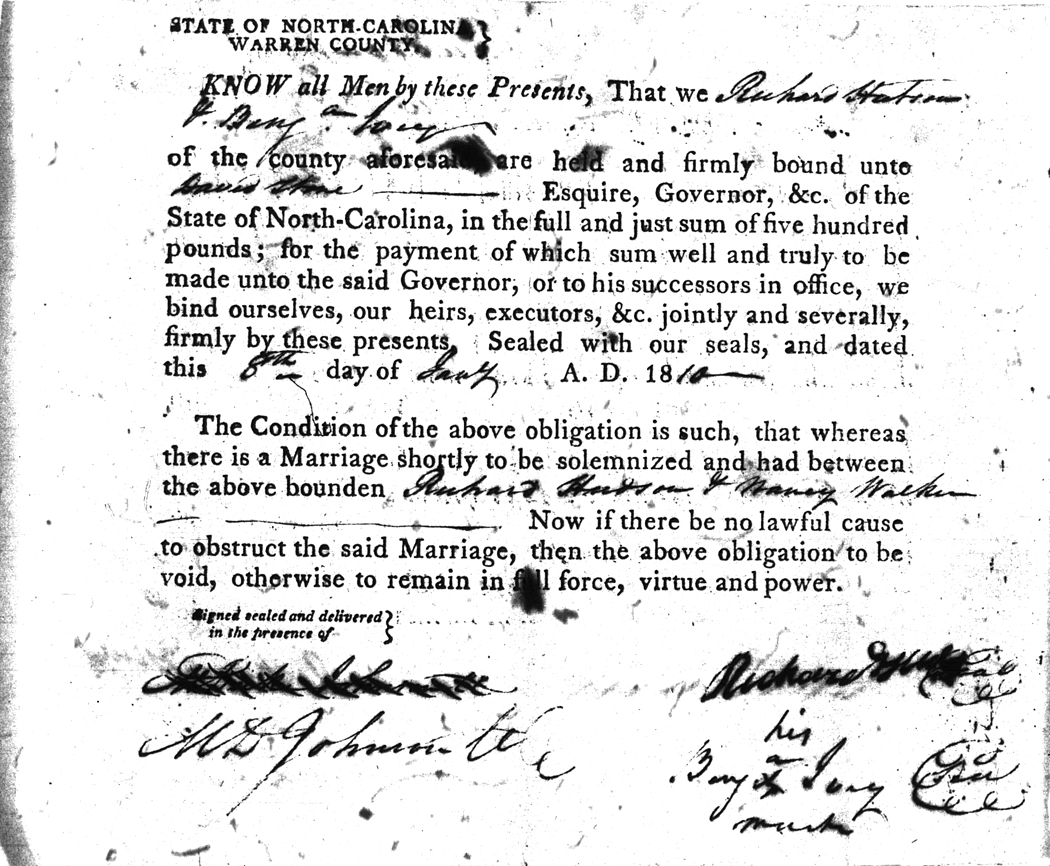 STATE OF NORTH-CAROLINA }
WARREN COUNTY.
KNOW all Men by these Presents, That we Richard Hutson
& Benjan. Ivey
of the county aforesaid, are held and firmly bound unto
David Stone Esquire, Governor, &c. of the
State of North-Carolina, in the full and just sum of five hundred
pounds; for the payment of which sum well and truly to be
made unto the said Governor, or to his successors in office, we
bind ourselves, our heirs, executors, &c. jointly and severally,
firmly by these presents. Sealed with our seals, and dated
this 8th day of Jany A. D. 1810
The Condition of the above obligation is such, that whereas
there is a Marriage shortly to be solemnized and had between
the above bounden Richard Hudson & Nancy Walker
Now if there be no lawful cause
to obstruct the said Marriage, then the above obligation to be
void, otherwise to remain in full force, virtue and power.
Signed sealed and delivered }
in the presence of
Richard
M D Johnson
his
Benja x Ivey Seal
mark